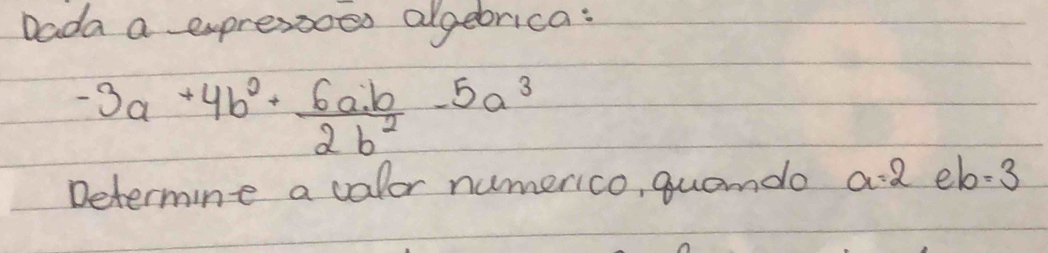 Dada a expressoões algebrica:
-3a +4b⁰ + 6a.b/2b² -5a³
Determine a valor numerico, quando a=2 e b=3